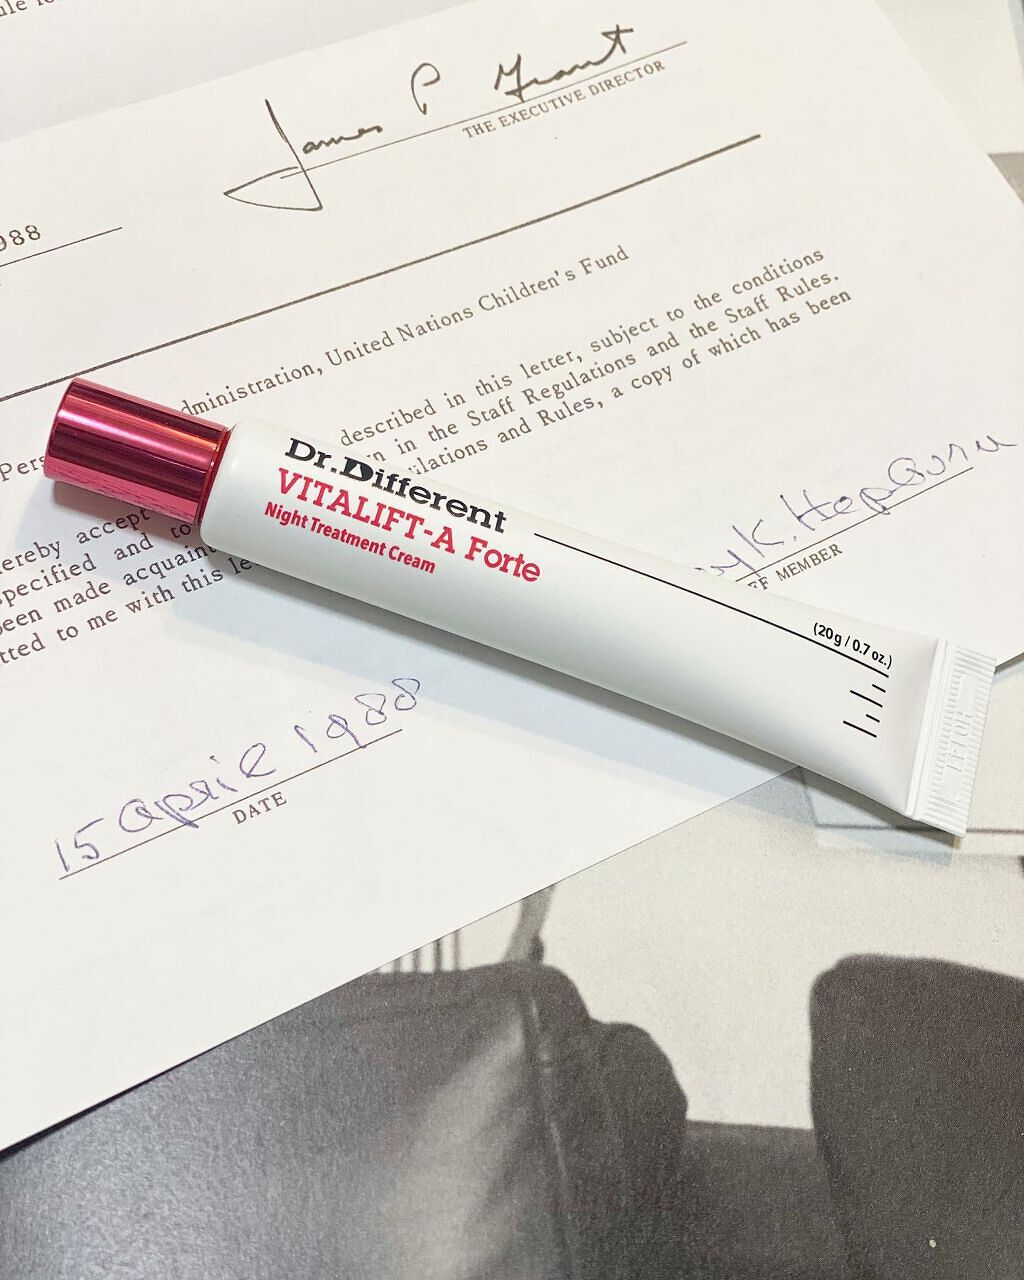 James P Grant
THE EXECUTIVE DIRECTOR
988
dministration, United Nations Children's Fund
described in this letter, subject to the conditions
in the Staff Regulations and the Staff Rules.
and Rules, a copy of which has been
Pers
ereby accept
specified and to
een made acquaint
tted to me with this le
K. Hepburn
MEMBER
15 aprie 1988
DATE
Dr.Different
VITALIFT-A Forte
Night Treatment Cream
(20g / 0.7 oz.)